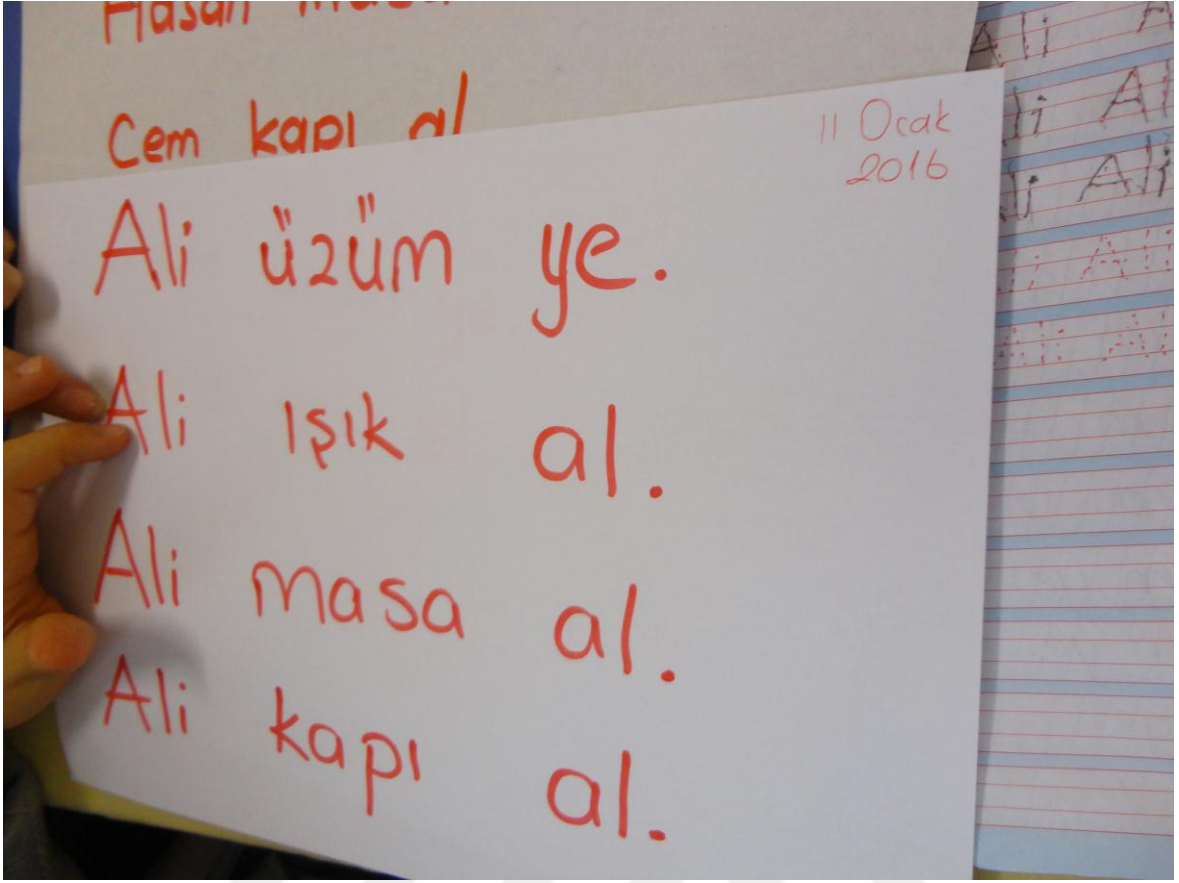 Hasan
Cem kapı al
11 Ocak
2016
Ali üzüm ye.
Ali ışık al.
Ali masa al.
Ali kapı al.
Ali
Al
Ali
Ali
Ali